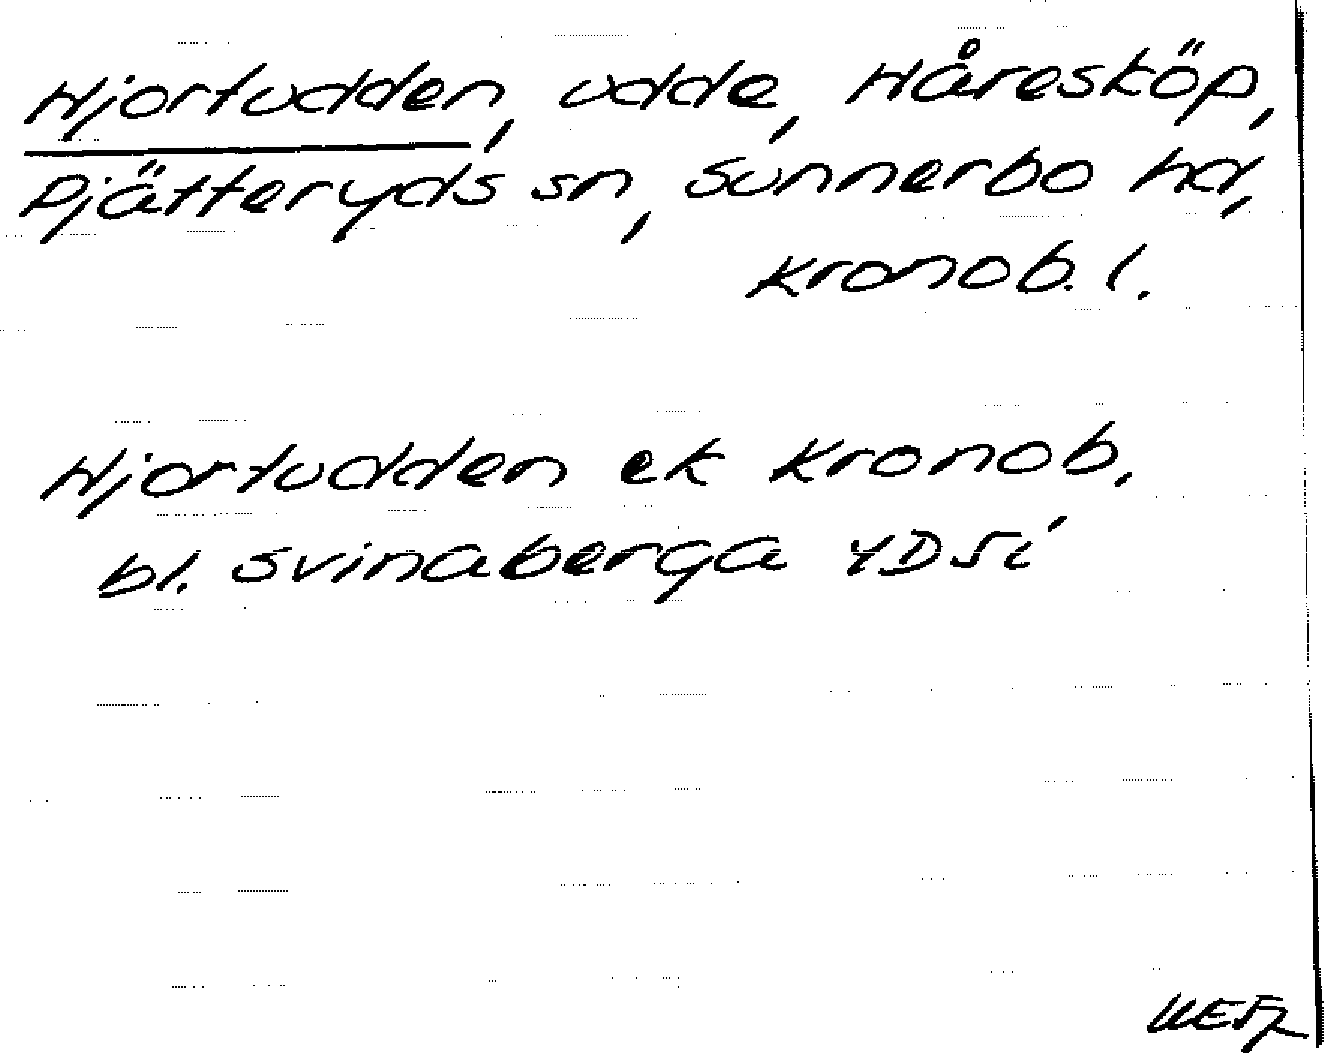 Hjortudden, udde, Håresköp,
Pjätteryds sn, Sunnerbo hd,
Kronob. l.
Hjortudden ek Kronob.
bl. Svinaberga 4D5i